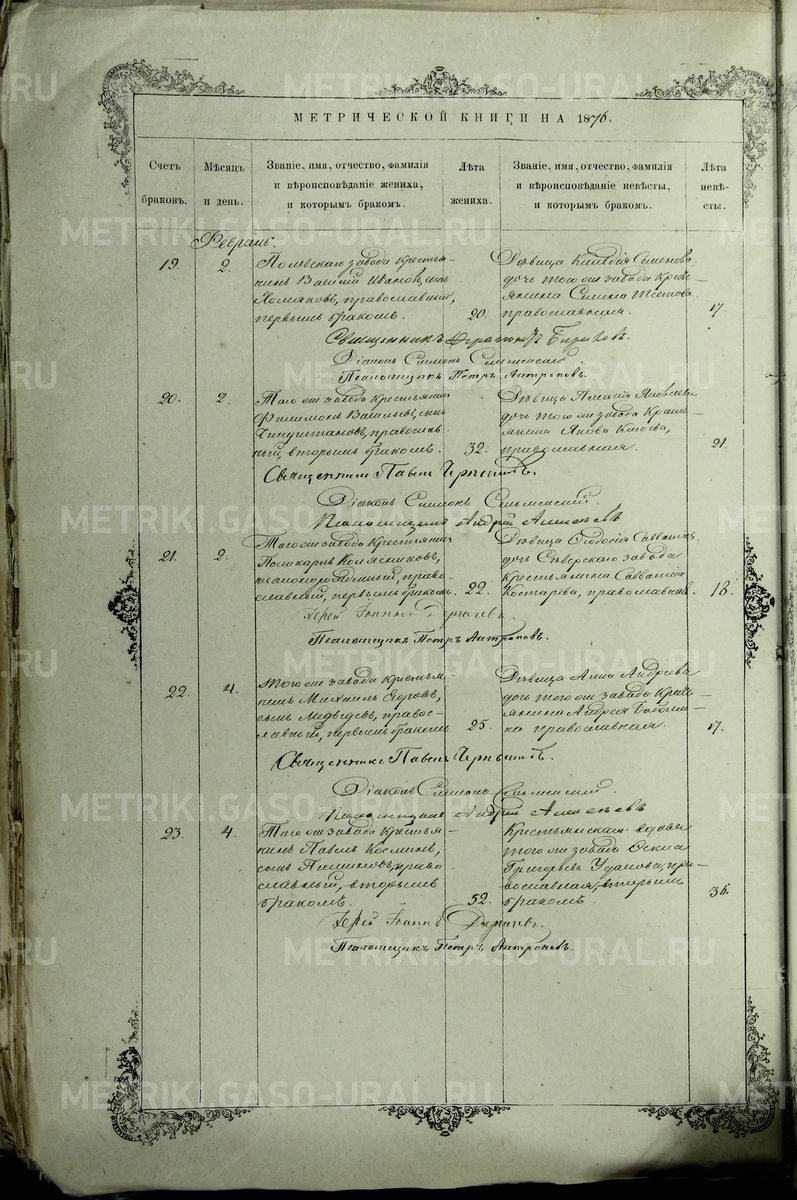 МЕТРИЧЕСКОЙ КНИГИ НА 1876.
Счетъ
браковъ.
Мѣсяцъ
и день.
Званіе, имя, отчество, фамилія
и вѣроисповѣданіе жениха,
и которымъ бракомъ.
Лѣта
жениха.
Званіе, имя, отчество, фамилія
и вѣроисповѣданіе невѣсты,
и которымъ бракомъ.
Лѣта
невѣ-
сты.
Февраль.
19. 2.
Полевскаго завода крестья-
нинъ Василій Ивановъ, сынъ
Хомяковъ, православный,
первымъ бракомъ. 20.
Дѣвица Симеонова,
дочь того же завода крест-
янина Симеона
православная. 17.
Священникъ Бирюковъ.
Діаконъ Симонъ
Псаломщикъ Петръ Антроповъ.
20. 2.
Того же завода крестьянинъ
Филимонъ Васильевъ, сынъ
православ-
ный, вторымъ бракомъ. 32.
Дѣвица Яковлева
дочь того же завода крест-
янина Якова
православная. 21.
Священникъ Павелъ
Діаконъ Симонъ
Псаломщикъ Андрей Алексѣевъ
21. 2.
Того же завода крестьянинъ
Поликарпъ Колясниковъ,
незаконорожденный, право-
славный, первымъ бракомъ. 22.
Дѣвица Ѳеодосія Савватіева
дочь Сѣверскаго завода
крестьянина Савватія
Костарева, православная. 18.
Іерей Іоаннъ
Псаломщикъ Петръ Антроповъ.
22. 4.
Того же завода крестья-
нинъ Михаилъ Егоровъ,
сынъ Медвѣдевъ, право-
славный, первымъ бракомъ. 25.
Дѣвица Анна Андреева
дочь того же завода крест-
янина Андрея
православная. 17.
Священникъ Павелъ
Діаконъ Симонъ
Псаломщикъ Андрей Алексѣевъ
23. 4.
Того же завода крестья-
нинъ Павелъ Косминъ,
сынъ право-
славный, вторымъ
бракомъ. 52.
Крестьянская вдова
того же завода
Григорьева пра-
вославная, вторымъ
бракомъ. 36.
Іерей Іоаннъ
Псаломщикъ Петръ Антроповъ.
METRIKI.GASO-URAL.RU